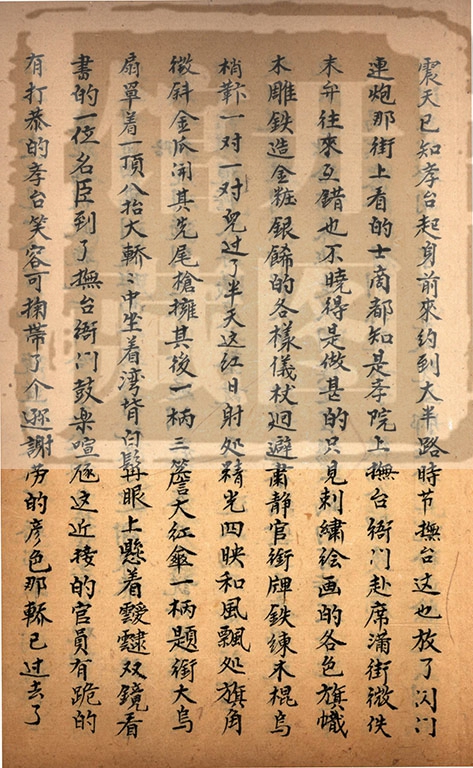 震天已知孝台起身前來約到大半路時节撫台这也放了闪门
連炮那街上看的士商都知是孝院上撫台衙门赴席滿街微佚
末弁往來互錯也不曉得是做甚的只見刺繡绘画的各色旗幟
木雕鉄造金粧銀餙的各樣儀杖迴避肅静官銜牌鉄練木棍烏
梢鞭一对一对兒过了半天这红日射处精光四映和风飄处旗角
微斜金瓜開其先尾槍擁其後一柄三簷大红傘一柄題銜大烏
扇單着一頂八抬大轎〻中坐着湾背白鬍眼上懸着靉靆双鏡看
書的一位名臣到了撫台衙门鼓楽喧庭这近接的官員有跪的
有打恭的孝台笑容可掬带了个遜謝劳的彦色那轎已过去了
开图
馆藏